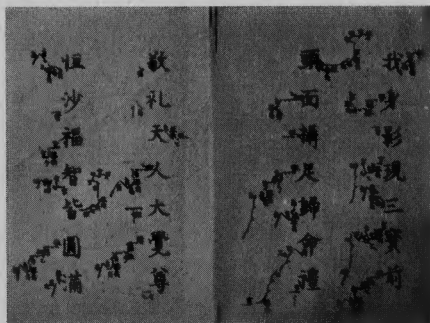 我身影現三寶前
頭面攝足歸命禮
敬礼天人大覚尊
恒沙福智皆圓滿